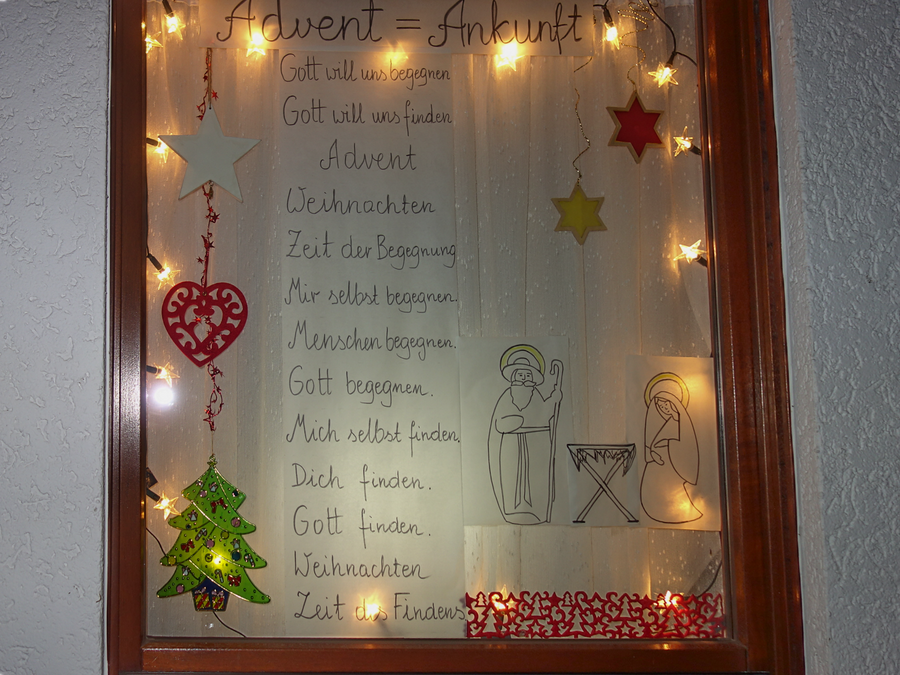 Advent = Ankunft
Gott will uns begegnen
Gott will uns finden
Advent
Weihnachten
Zeit der Begegnung
Mir selbst begegnen.
Menschen begegnen.
Gott begegnen.
Mich selbst finden.
Dich finden.
Gott finden.
Weihnachten
Zeit des Findens